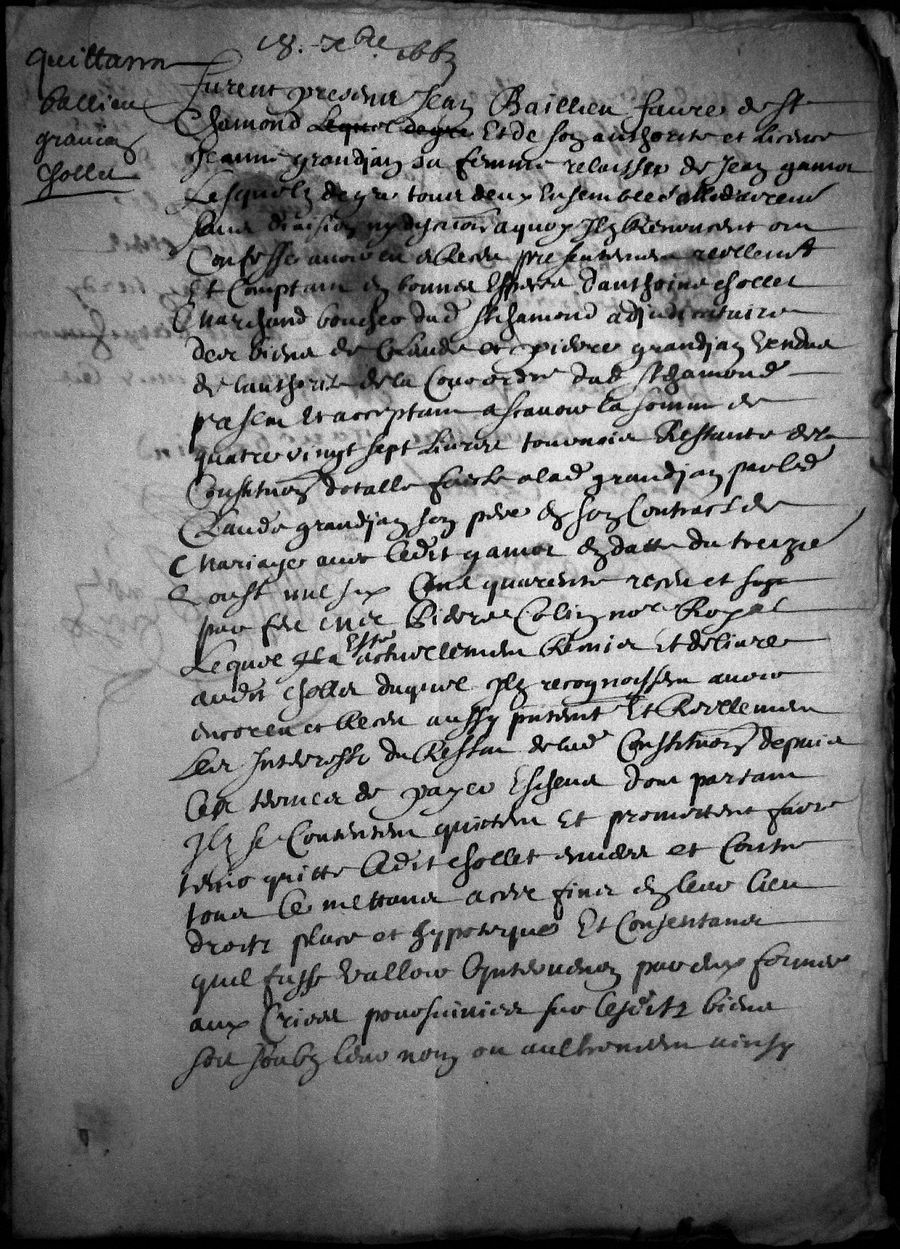 18. xbre 166
quittance
baillieu
grandjan
chollet
Furent presens Jean Baillieu faure de St
Chamond Lequel de gre Et de son authorite et licence
Jeanne grandjan sa femme relaissee de Jean gamot
Lesquelz de gre tous deux Ensemble
sans division ny discution a quoy Ilz Renoncent ont
Confesse avoir eu et Receu presentement reellemt
Et Comptant en bonnes Especes d'anthoine chollet
Marchand boucher dud St chamond adjudicataire
des biens de Claude et pierre grandjan vendus
de lauthorite de la Cour ord.re dud St chamond
pnt et acceptant a scavoir la somme de
quatre vingt sept livres tournois Restante de la
Constituon dotalle faicte a lad grandjan par led
Claude grandjan son pere en son Contract de
Mariage avec ledit gamot en datte du treize
aoust mil six Cent quarente receu et signe
par feu me Pierre Colin no.re Royal
Lequel Il a Este actuellement Remis Et delivre
audit chollet duquel Ilz recognoissent avoir
encores et Receu aussy pntemt Et Reellement
Les Interestz du Restant de lad Constituon depuis
les termes de payer Escheus dont partant
Ilz se Contentent quittent Et promettent faire
tenir quitte ledit chollet envers et Contre
tous le mettans a ces fins en leur lieu
droitz place et hypoteque Et Consentans
quil fasse valloir par eux formee
aux Criees poursuivies sur lesditz biens
soit soubz leur nom ou aultrement ainsy